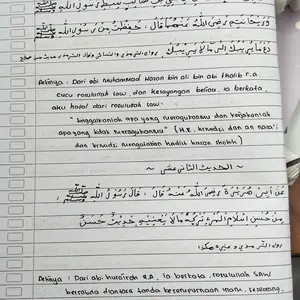 وريحانته رضي الله عنهما قال : حفظت من رسول الله ﷺ
دع ما يريبك الى ما لا يريبك
Artinya : Dari abi muhammad Hasan bin ali bin abi thalib r.a,
cucu rasulullah saw. dan kesayangan beliau. ia berkata,
aku hafal dari rasulullah saw.
"tinggalkanlah apa yang meragukanmu dan kerjakanlah
apa yang tidak meragukanmu" (H.R. tirmidzi dan an nasa'i
dan tirmidzi mengatakan hadist hasan shohih)
~ الحديث الثاني عشر ~
عن ابي هريرة رضي الله عنه قال : قال رسول الله ﷺ :
من حسن اسلام المرء تركه ما لا يعنيه حديث حسن
رواه الترمذي و غيره هكذا
Artinya : Dari abi hurairah R.A, ia berkata. rasulullah SAW
bersabda diantara tanda kesempurnaan islam seseorang